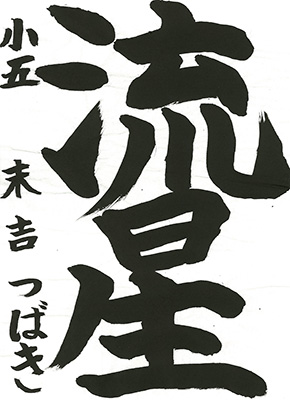 流星
小五 末吉つばき